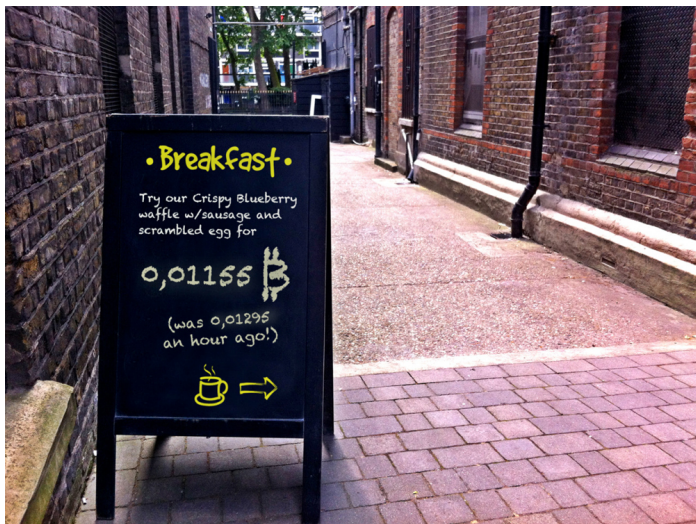 • Breakfast •
Try our Crispy Blueberry
waffle w/sausage and
scrambled egg for
0,01155 ₿
(was 0,01295
an hour ago!)